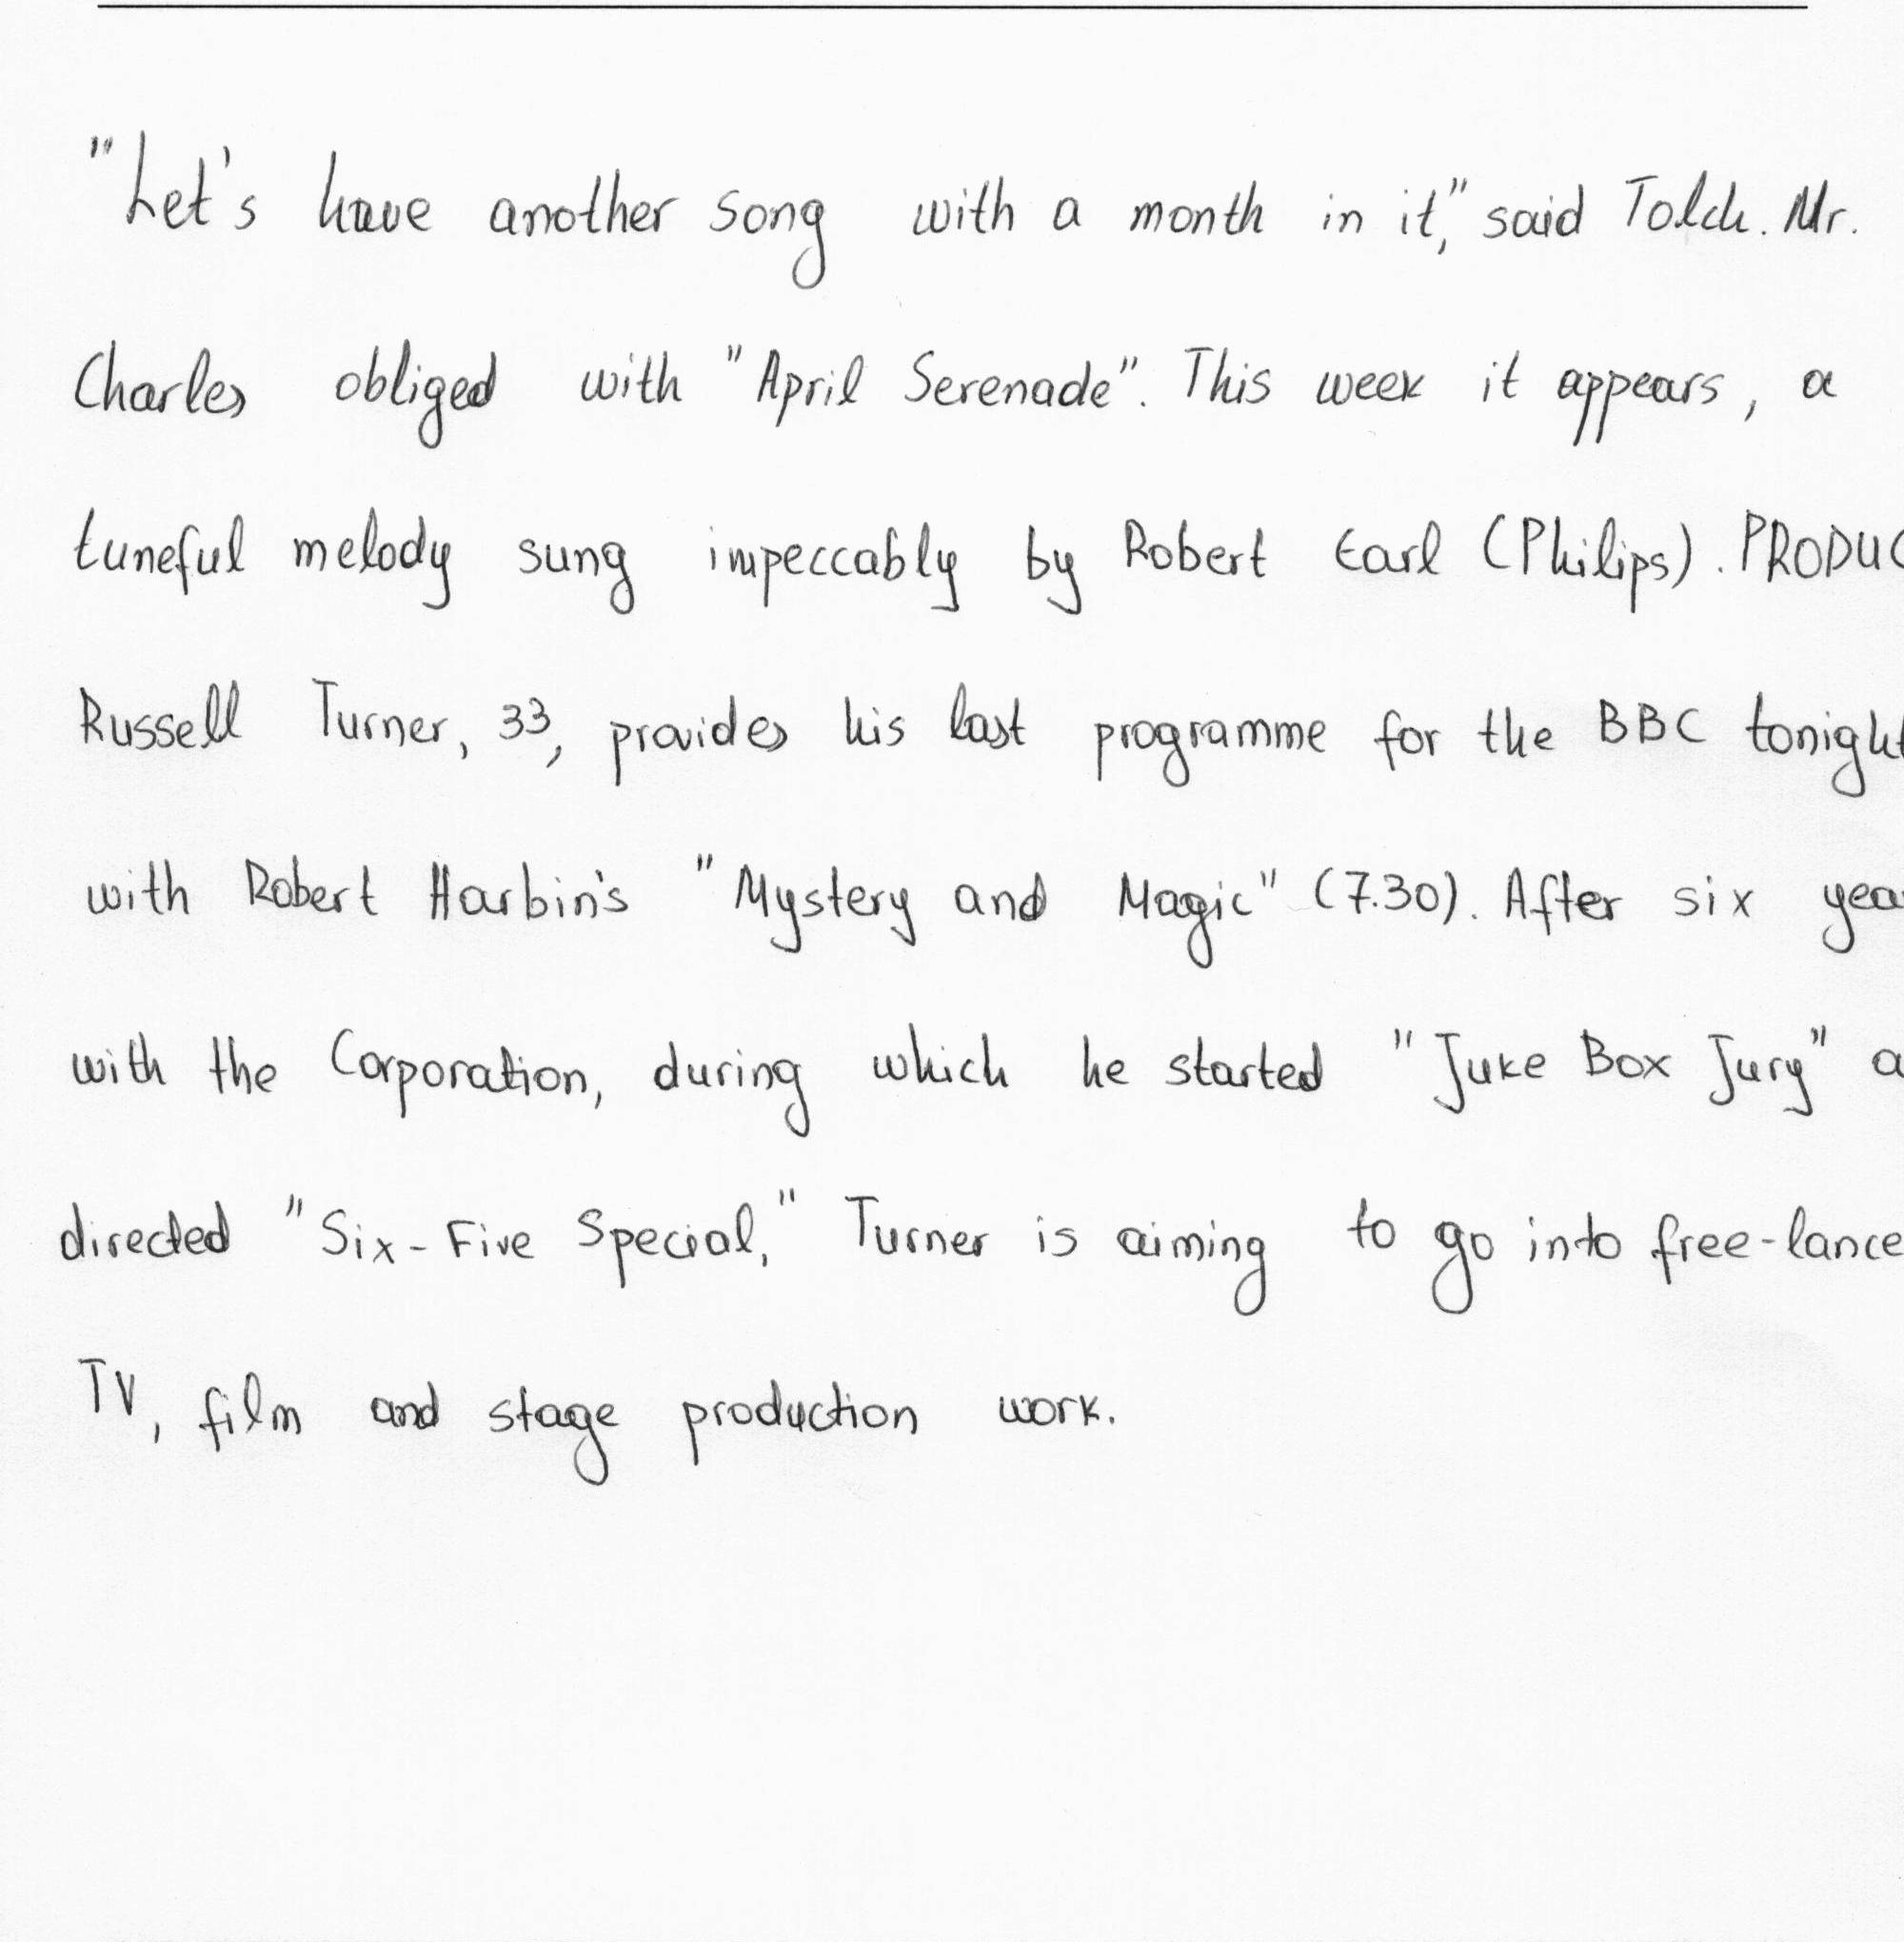 "Let's have another song with a month in it," said Tolch. Mr.
Charles obliged with "April Serenade". This week it appears, a
tuneful melody sung impeccably by Robert Earl (Philips). PRODUC
Russell Turner, 33, provides his last programme for the BBC tonight
with Robert Harbin's "Mystery and Magic" (7.30). After six yea
with the Corporation, during which he started "Juke Box Jury" a
directed "Six-Five Special," Turner is aiming to go into free-lance
TV, film and stage production work.